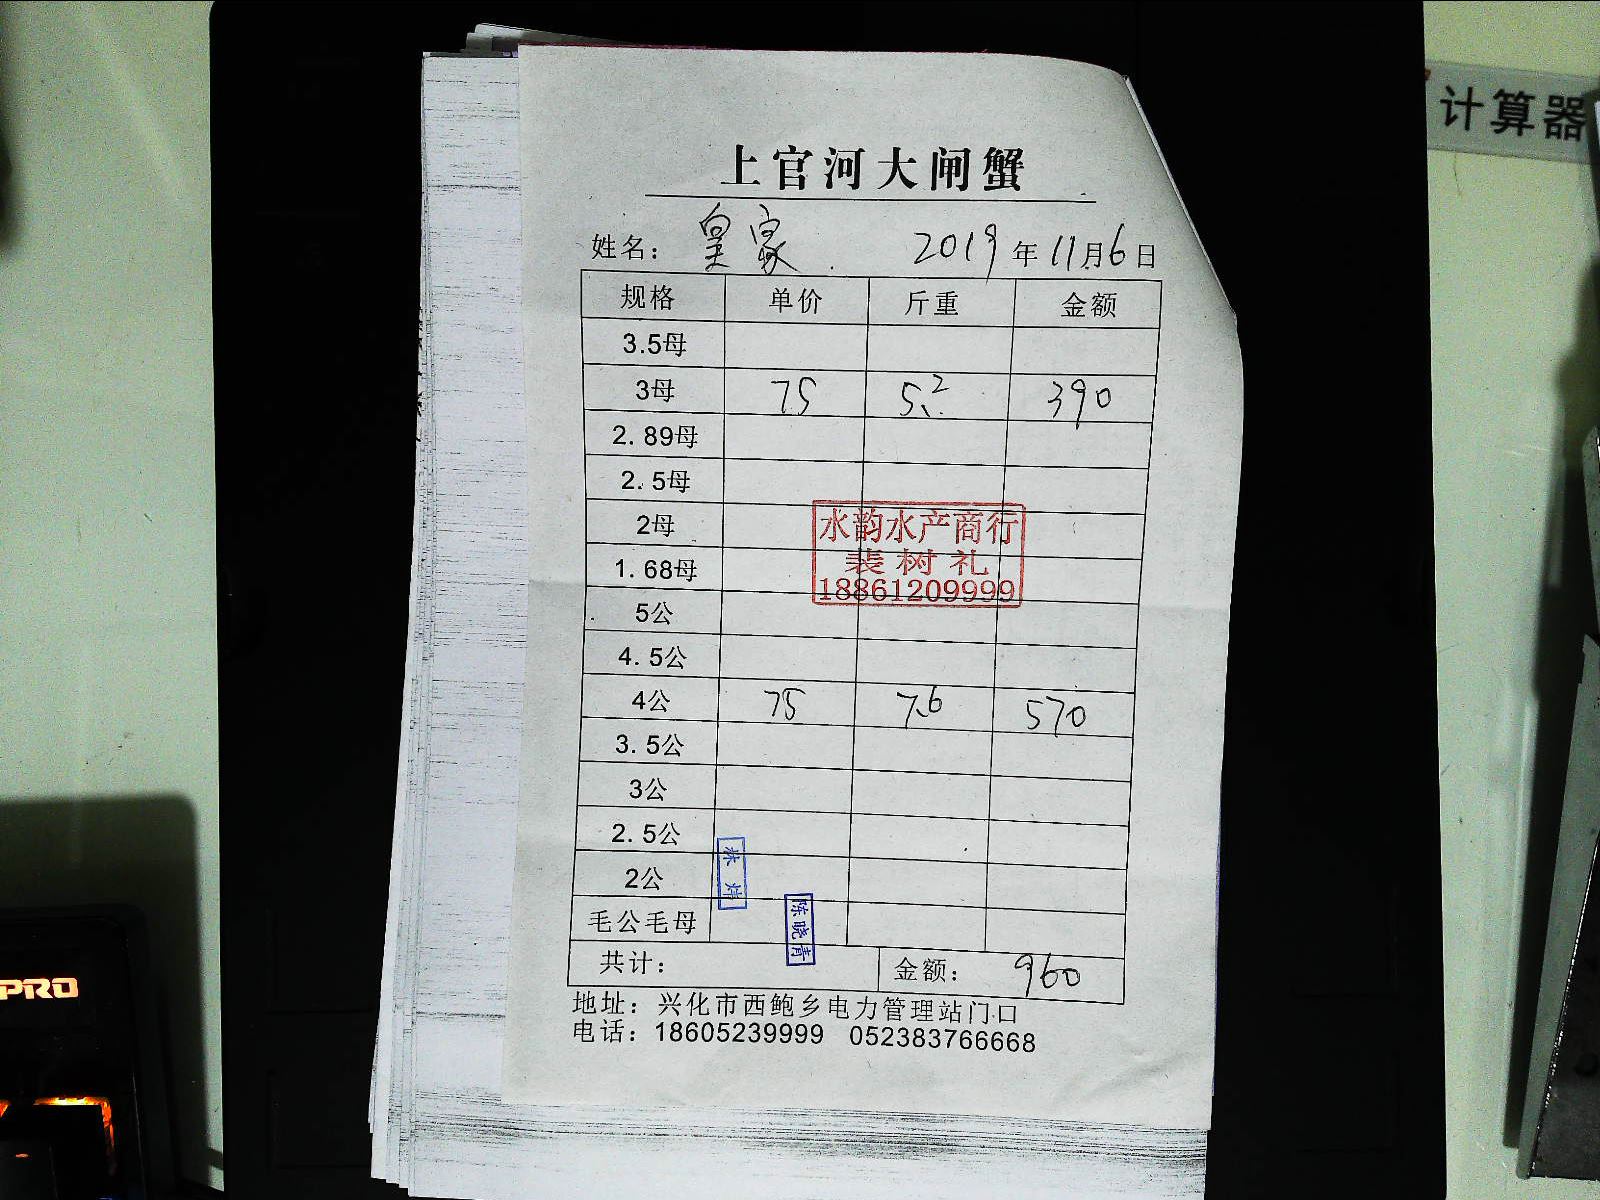 计算器
上官河大闸蟹
姓名: 皇家 2019年11月6日
规格 单价 斤重 金额
3.5母
3母 75 5.2 390
2.89母
2.5母
2母
1.68母
水韵水产商行
裴树礼
18861209999
5公
4.5公
4公 75 7.6 570
3.5公
3公
2.5公
2公
林炜
毛公毛母
陈晓青
共计: 金额: 960
地址: 兴化市西鲍乡电力管理站门口
电话: 18605239999 052383766668
PRO